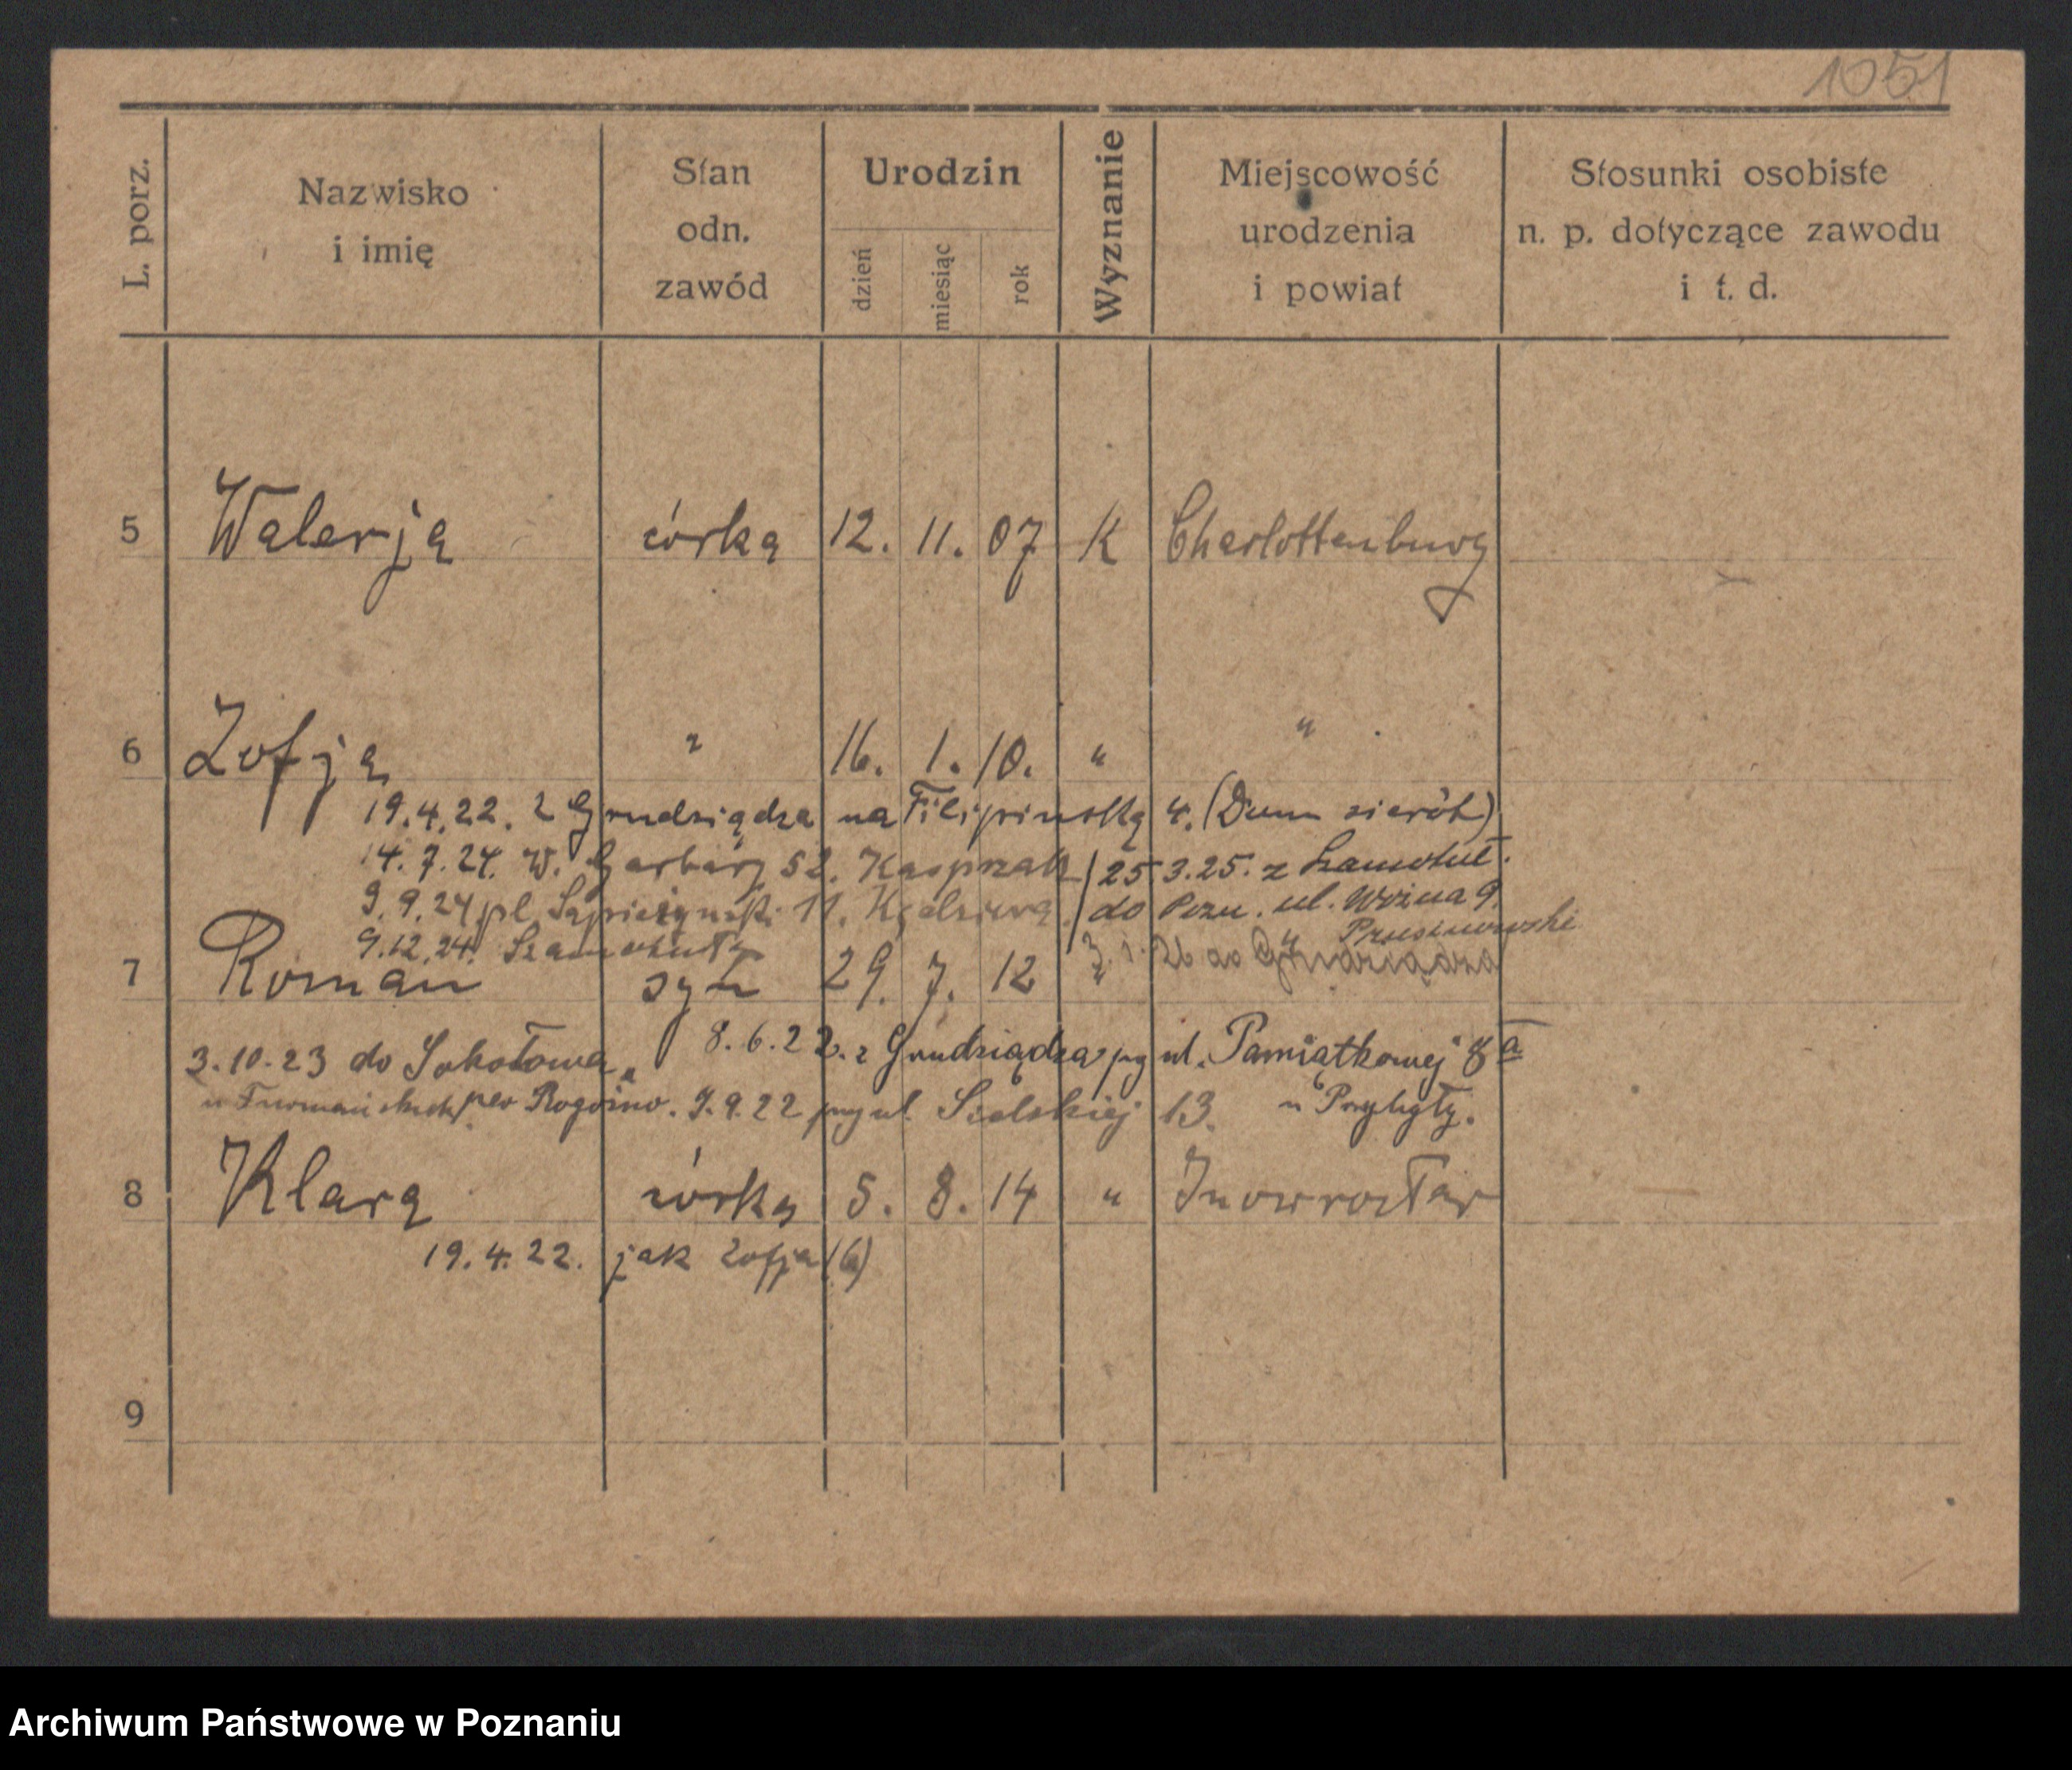 1051
L. porz.
Nazwisko
i imię
Stan
odn.
zawód
Urodzin
dzień
miesiąc
rok
Wyznanie
Miejscowość
urodzenia
i powiat
Stosunki osobiste
n. p. dotyczące zawodu
i t. d.
5 Walerja córka 12. 11. 07 K Charlottenburg
6 Zofja " 16. 1. 10. " "
19.4.22. z Grudziądza na Filipińską 4. (Dom sierót)
14.7.24. W. Garbary 52. Kasprzak / 25.3.25. z Szamotuł.
9.9.24 pl. Sapieżyński 11. / do Pozn. ul. Woźna 9.
9.12.24. Szamotuły
3. 1. 26 do Grudziądza
7 Roman syn 29. 7. 12 "
3.10.23 do Sokołowa 8.6.22. z Grudziądza przy ul. Pamiątkowej 8a
pow Rogoźno. 9.9.22 przy ul. 13. u Przybyły.
8 Klara córka 5. 8. 14 " Inowrocław
19.4.22. jak Zofja (6)
9
Archiwum Państwowe w Poznaniu